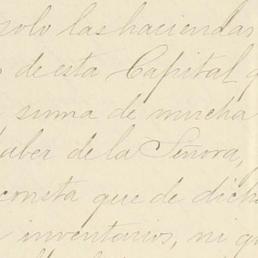 solo las haciendas
de esta Capital q
suma de mucha
haber de la Señora,
consta que de dich
inventarios, ni q